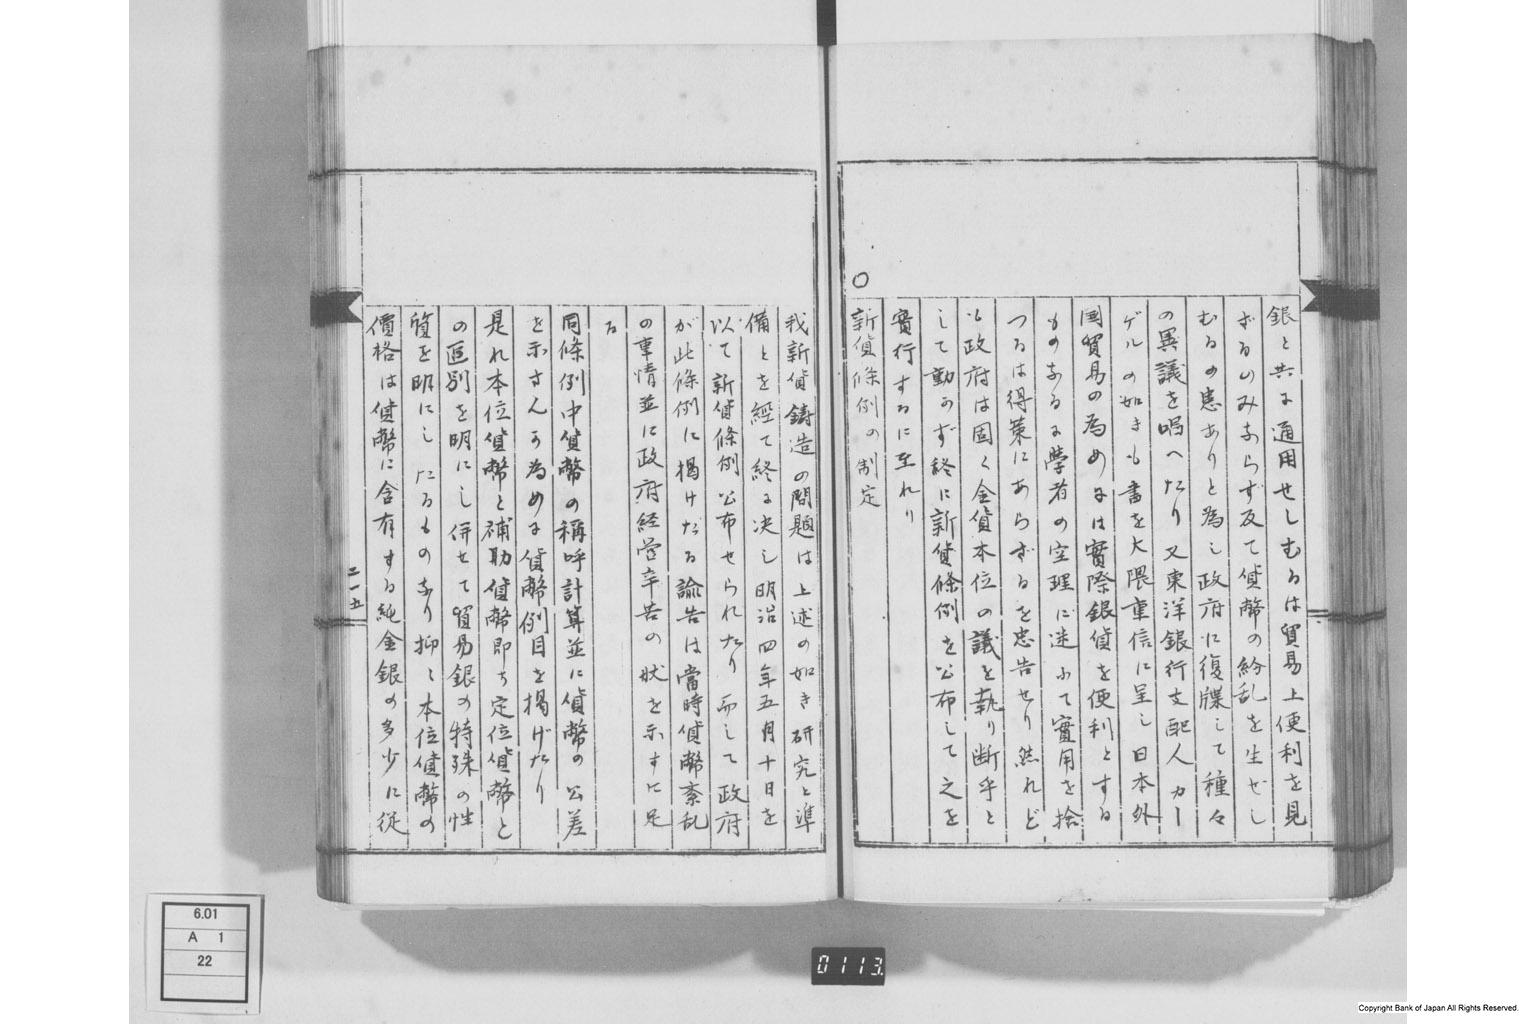 銀と共に通用せしむるは貿易上便利を見
ざるのみならず反て貨幣の紛乱を生ぜし
むるの患ありと為し政府に復牒して種々
の異議を唱へたり又東洋銀行支配人カー
ゲルの如きも書を大隈重信に呈し日本外
国貿易の為めには實際銀貨を便利とする
ものなるに学者の空理に迷ふて實用を捨
つるは得策にあらざるを忠告せり然れど
も政府は固く金貨本位の議を執り断乎と
して動かず終に新貨條例を公布して之を
實行するに至れり
○新貨條例の制定
我新貨鋳造の問題は上述の如き研究と準
備とを経て終に决し明治四年五月十日を
以て新貨條例公布せられたり而して政府
が此條例に掲げたる諭告は當時貨幣紊乱
の事情並に政府経営辛苦の状を示すに足
る
同條例中貨幣の稱呼計算並に貨幣の公差
を示さんか為めに貨幣例目を掲げたり
是れ本位貨幣と補助貨幣即ち定位貨幣と
の區別を明にし併せて貿易銀の特殊の性
質を明にしたるものなり抑々本位貨幣の
價格は貨幣に含有する純金銀の多少に従
二一五
6.01
A 1
22
0113
Copyright Bank of Japan All Rights Reserved.